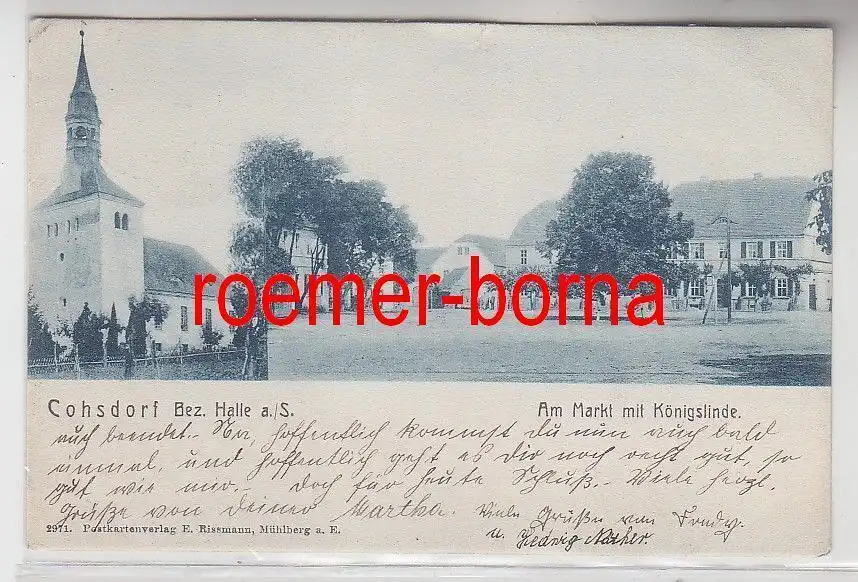 roemer-borna
Cohsdorf Bez. Halle a./S.
Am Markt mit Königslinde.
auch beendet.- Na, hoffentlich kommst du nun auch bald
einmal, und hoffentlich geht es Dir noch recht gut, so
gut wie mir.- Doch für heute Schluß.- Viele herzl.
Grüße von deiner Martha. Viele Grüße von
u. Hedwig Näther.
2971. Postkartenverlag E. Rissmann, Mühlberg a. E.